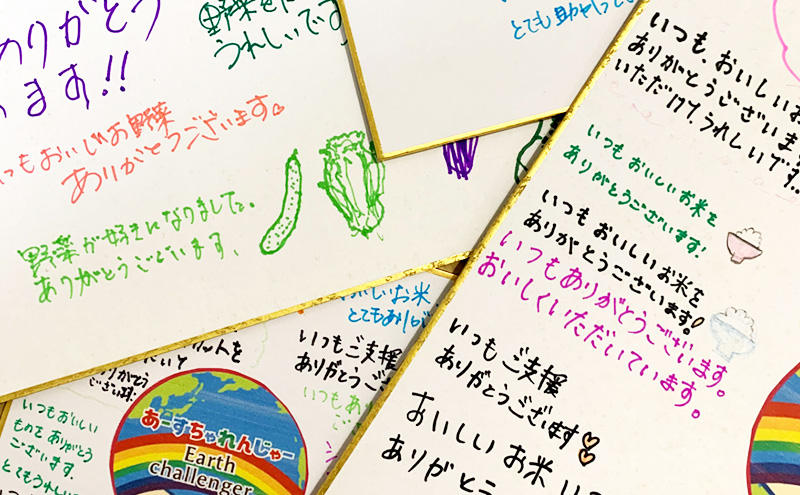 ありがとう
います!!
野菜を
うれしいです
いつもおいしいお野菜
ありがとうございます
野菜が好きになりました。
ありがとうございます、
とても助かって
いつも、おいしいお
ありがとうございます
いただけて、うれしいです
いつもおいしいお米を
ありがとうございます!
いつもおいしいお米を
ありがとうございます!
いつもありがとうございます。
おいしくいただいています。
いつもご支援
ありがとうございます
おいしい お米 い
ありがとう
おいしいお米
とてもあり
いつもご支援
ありがとうござ
いつもあ
ットを
ありがとう
ござい
いつもおいしい
ものをありがとう
ございます。
とてもうれしい
あーすちゃれんじゃー
Earth
challenger